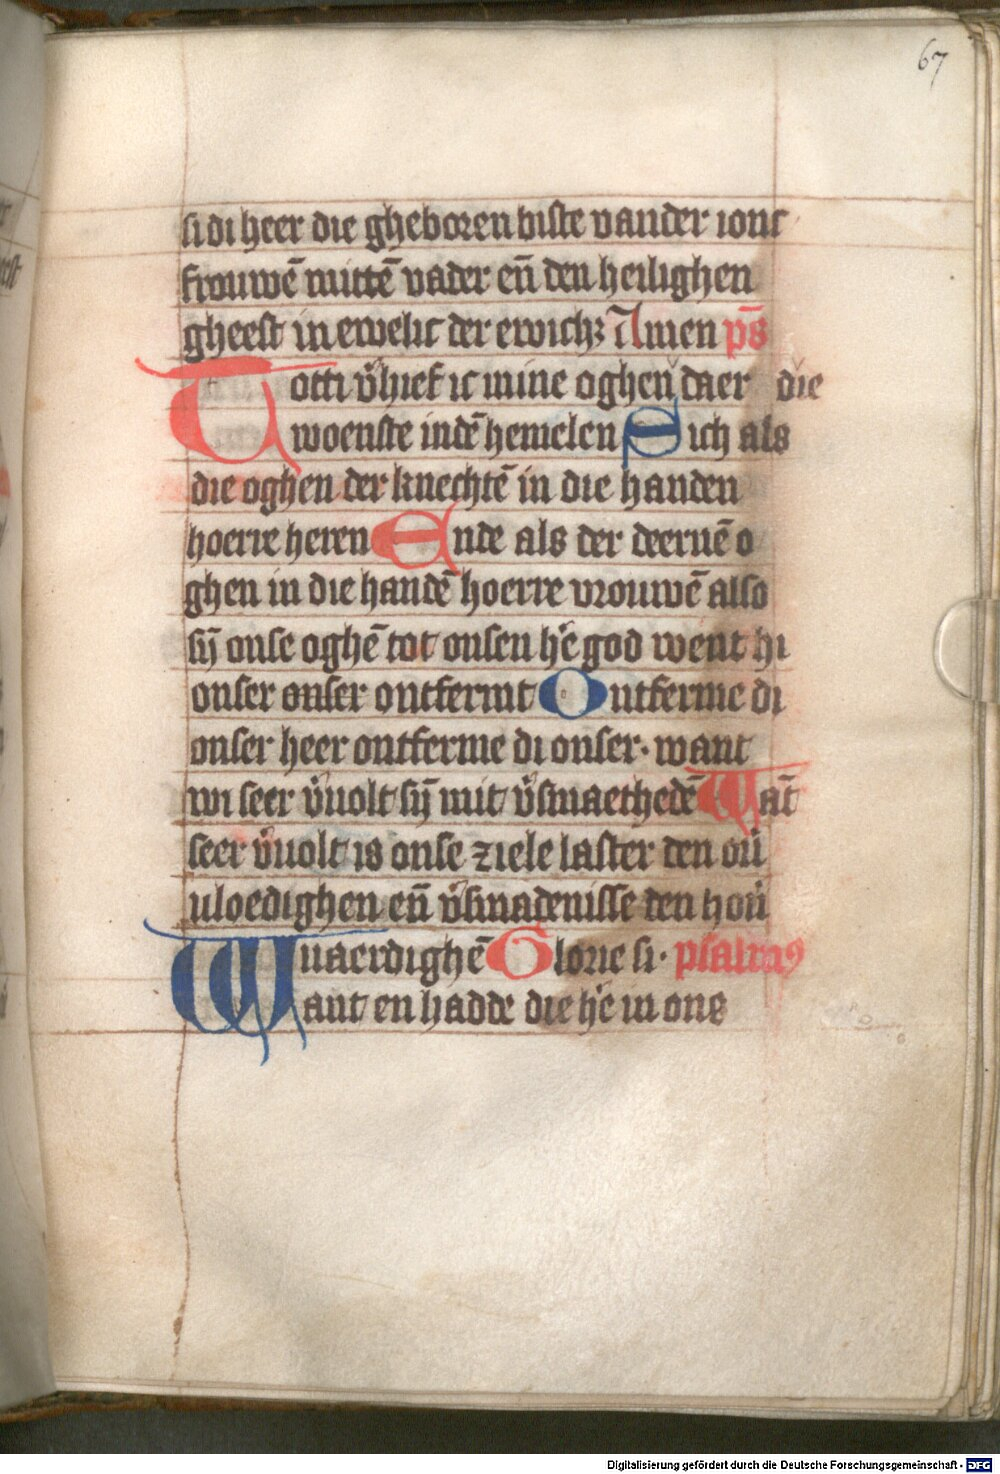 67
si di heer die gheboren biste vander ionc
frouwē mittē vader eñ den heilighen
gheest in ewelic der ewich; Amen ps̄
Totti v̓hief ic mine oghen daer die
woenste indē hemelen Sich als
die oghen der knechtē in die handen
hoerre heren Ende als der deernē o
ghen in die handē hoerre vrouwē also
sȳ onse oghē tot onsen hē god went hi
onser onser ontfermt Ontferme di
onser heer ontferme di onser· want
wi seer v̓uolt sȳ mit v̓smaethedē Wāt
seer v̓uolt is onse ziele laster den ou̓
uloedighen eñ v̓smadenisse den hou̓
uaerdighē Glorie si· psalmꝰ
Want en hadde die hē in ons
Digitalisierung gefördert durch die Deutsche Forschungsgemeinschaft - DFG